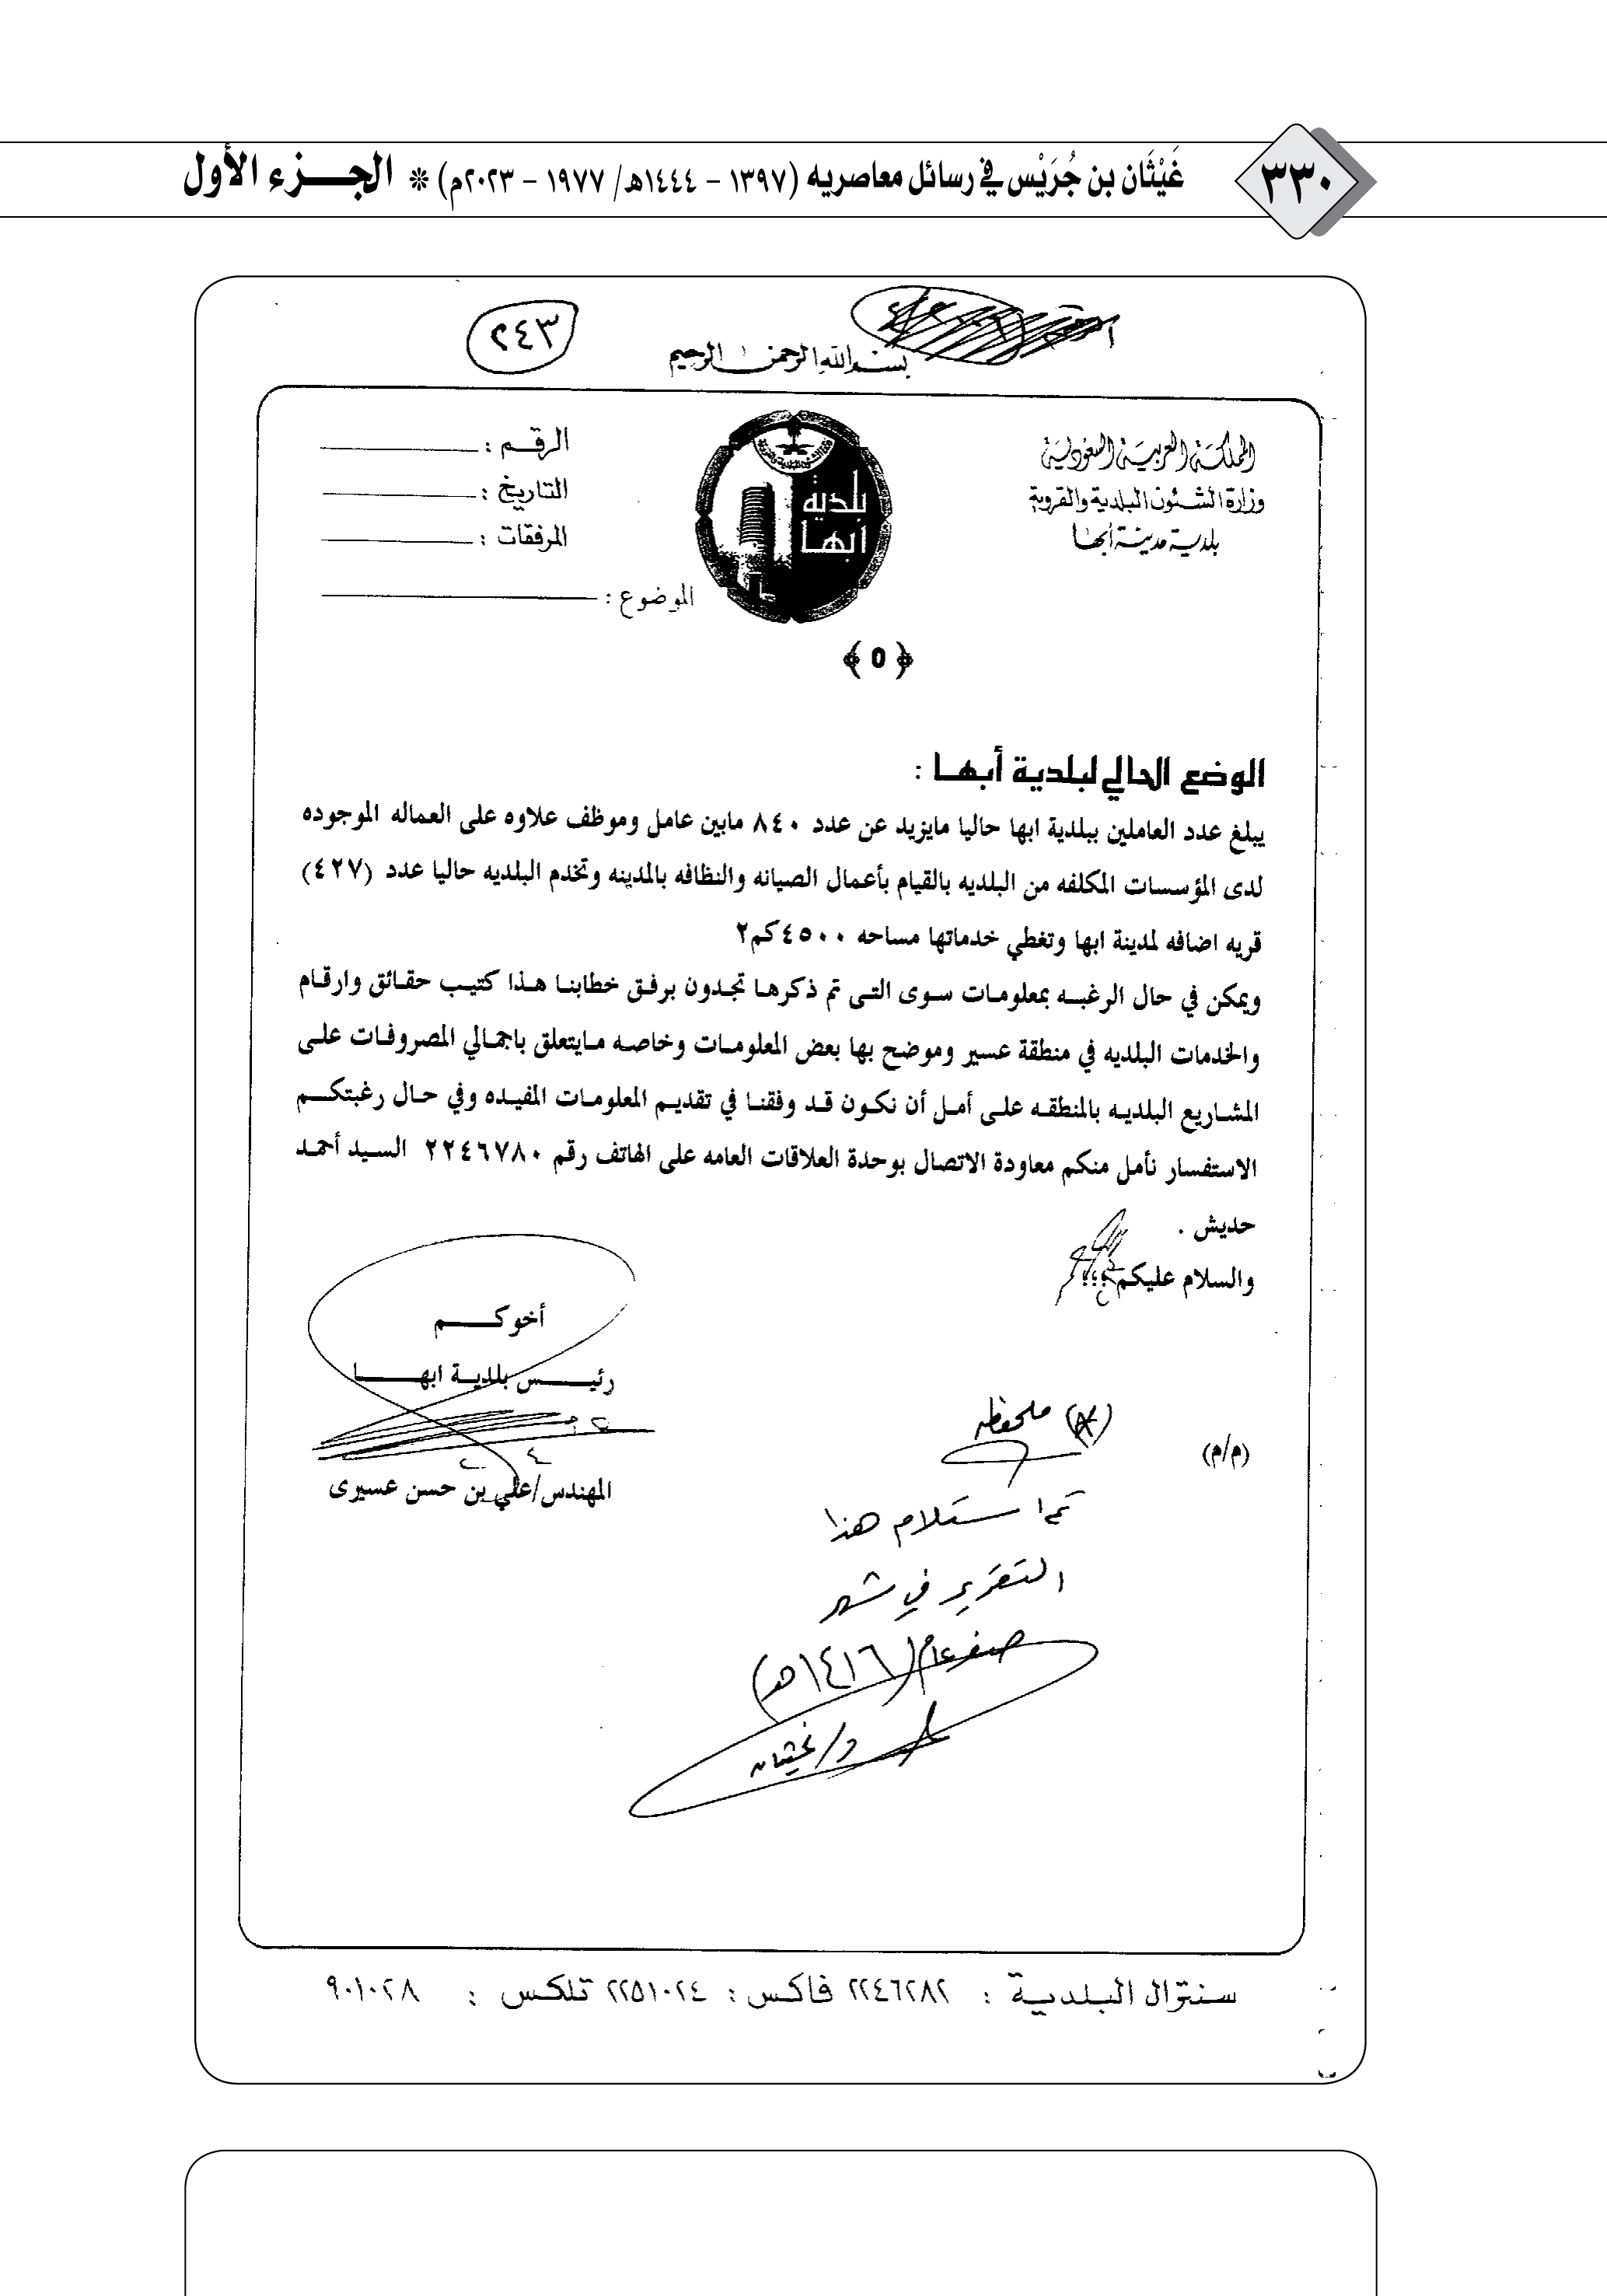 ٣٣٠
غَيْثَان بن جُرَيْس في رسائل معاصريه (١٣٩٧ - ١٤٤٤هـ/ ١٩٧٧ - ٢٠٢٣م) * الجـــزء الأول
٢٤٣
بسم الله الرحمن الرحيم
المملكة العربية السعودية
وزارة الشئون البلدية والقروية
بلدية مدينة أبها
بلدية
ابها
الرقم :
التاريخ :
المرفقات :
الموضوع :
﴿ ٥ ﴾
الوضع الحالي لبلدية أبهـا :
يبلغ عدد العاملين ببلدية ابها حاليا مايزيد عن عدد ٨٤٠ مابين عامل وموظف علاوه على العماله الموجوده
لدى المؤسسات المكلفه من البلديه بالقيام بأعمال الصيانه والنظافه بالمدينه وتخدم البلديه حاليا عدد (٤٢٧)
قريه اضافه لمدينة ابها وتغطي خدماتها مساحه ٤٥٠٠كم٢
ويمكن في حال الرغبـه بمعلومـات سـوى التـى تم ذكرهـا تجـدون برفـق خطابنـا هـذا كتيـب حقـائق وارقـام
والخدمات البلديه في منطقة عسير وموضح بها بعض المعلومـات وخاصـه مـايتعلق باجمـالي المصروفـات علـى
المشـاريع البلديـه بالمنطقـه علـى أمـل أن نكـون قـد وفقنـا في تقديـم المعلومـات المفيـده وفي حـال رغبتكـم
الاستفسار نأمل منكم معاودة الاتصال بوحدة العلاقات العامه على الهاتف رقم ٢٢٤٦٧٨٠ السـيد أحمـد
حديش .
والسلام عليكم ؛؛؛
أخوكـــم
رئيـــس بلديـة ابهـــا
المهندس/علي بن حسن عسيرى
(م/م)
(*) ملحوظه
تم استلام هذا
التقرير في شهر
صفر عام (١٤١٦هـ)
د/غيثان
سنترال البلدية : ٢٢٤٦٢٨٢ فاكس : ٢٢٥١٠٢٤ تلكس : ٩٠١٠٢٨